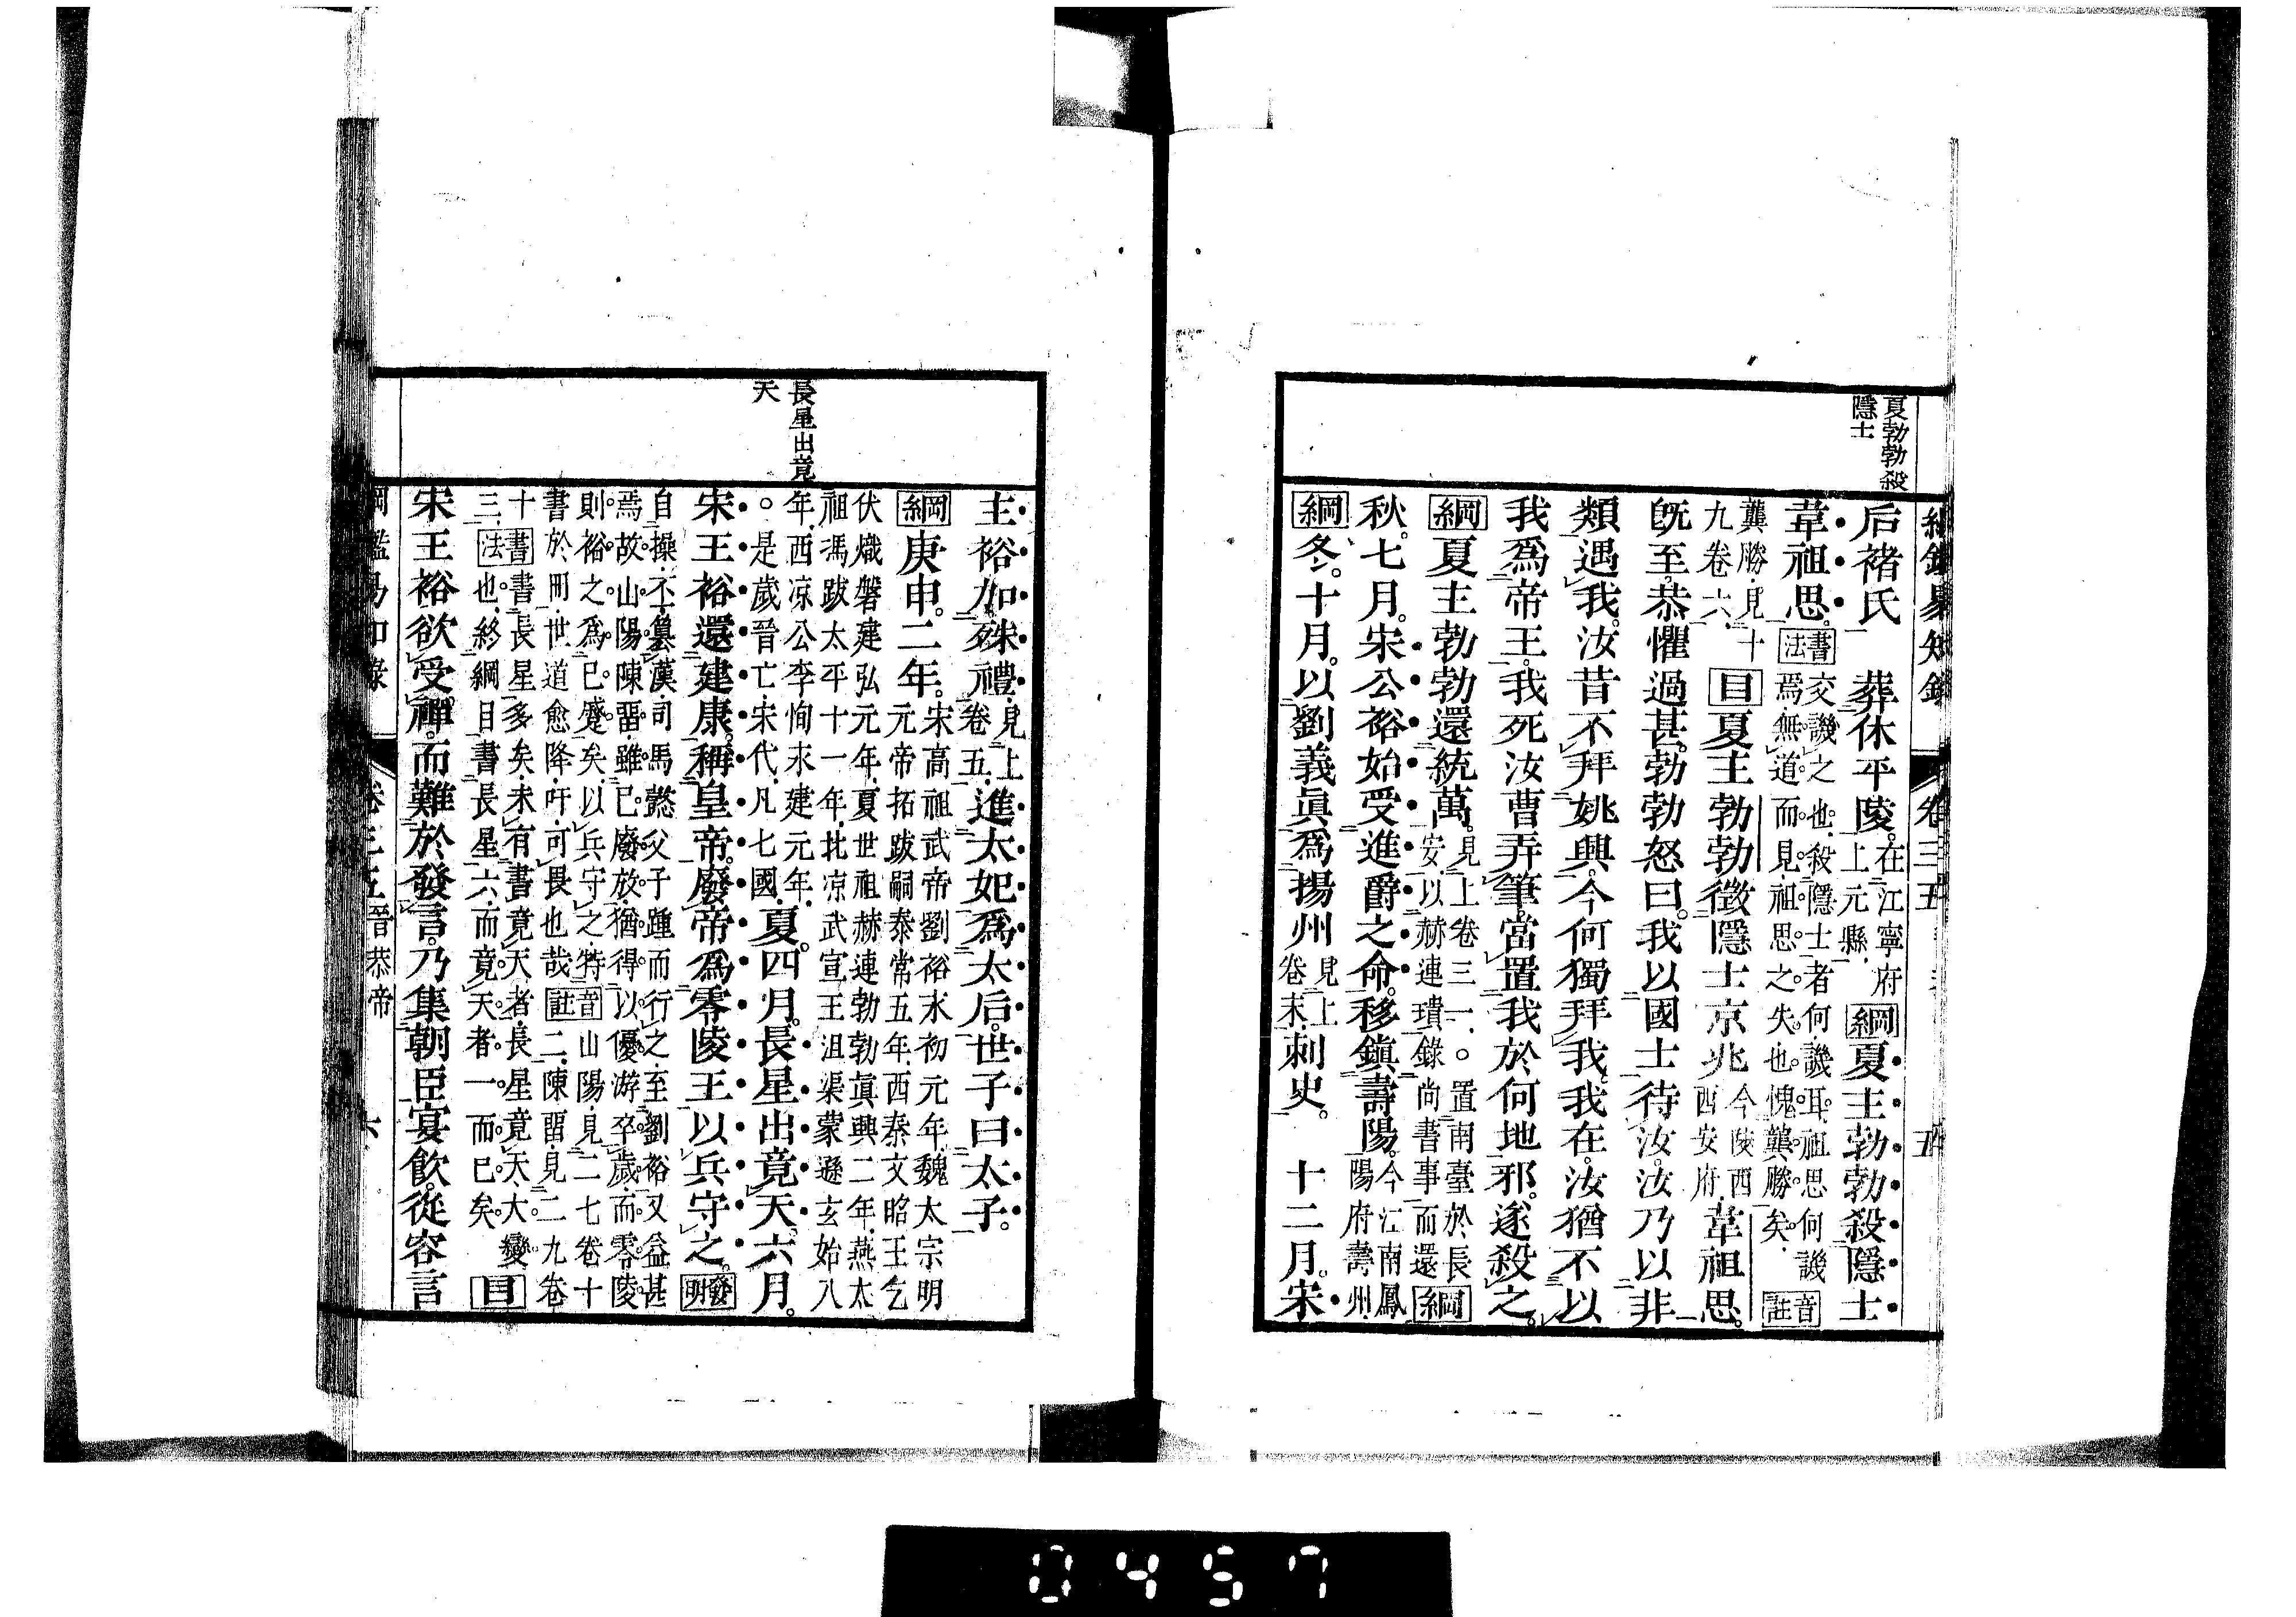 綱鑑易知錄 卷三五 五
夏勃勃殺
隱士
后褚氏 葬休平陵。在江寧府上元縣、綱夏主勃勃殺隱士
韋祖思。書法交譏之也、殺隱士者何、譏耳、祖思何譏焉、無道而見、祖思之失也、愧龔勝矣、音註
龔勝、見十九卷六、目夏主勃勃徵隱士京兆今陝西西安府、韋祖思。
旣至、恭懼過甚。勃勃怒曰。我以國士待汝。汝乃以非
類遇我。汝昔不拜姚興。今何獨拜我。我在。汝猶不以
我爲帝王。我死汝曹弄筆。當置我於何地邪。遂殺之。
綱夏主勃勃還統萬。見上卷三一、○置南臺於長安、以赫連璝錄尚書事而還綱
秋。七月。宋公裕始受進爵之命。移鎭壽陽。今江南鳳陽府壽州、
綱冬。十月。以劉義眞爲揚州見上卷末、刺史。 十二月。宋
主裕加殊禮、見上卷五、進太妃爲太后。世子曰太子。
綱庚申。二年。宋高祖武帝劉裕永初元年、魏太宗明元帝拓跋嗣泰常五年、西秦文昭王乞
伏熾磐建弘元年、夏世祖赫連勃勃眞興二年、燕太祖馮跋太平十一年、北涼武宣王沮渠蒙遜玄始八
年、西涼公李恂永建元年、○是歲晉亡、宋代、凡七國、夏。四月。長星出竟天。六月。
長星出竟
天
宋王裕還建康。稱皇帝。廢帝爲零陵王以兵守之。發明
自操、丕篡漢、司馬懿父子踵而行之、至劉裕又益甚焉、故山陽陳留、雖已廢放、猶得以優游卒歲、而零陵
則裕之爲已蹙矣、以兵守之、特書於冊、世道愈降、吁、可畏也哉音註山陽、見二七卷十二、陳留見二九卷
十三、書法書長星多矣、未有書竟天者、長星竟天、大變也、終綱目書長星六、而竟天者一而已矣、目
宋王裕欲受禪。而難於發言。乃集朝臣宴飮。從容言
綱鑑易知錄 卷三五 晉恭帝 六
0457